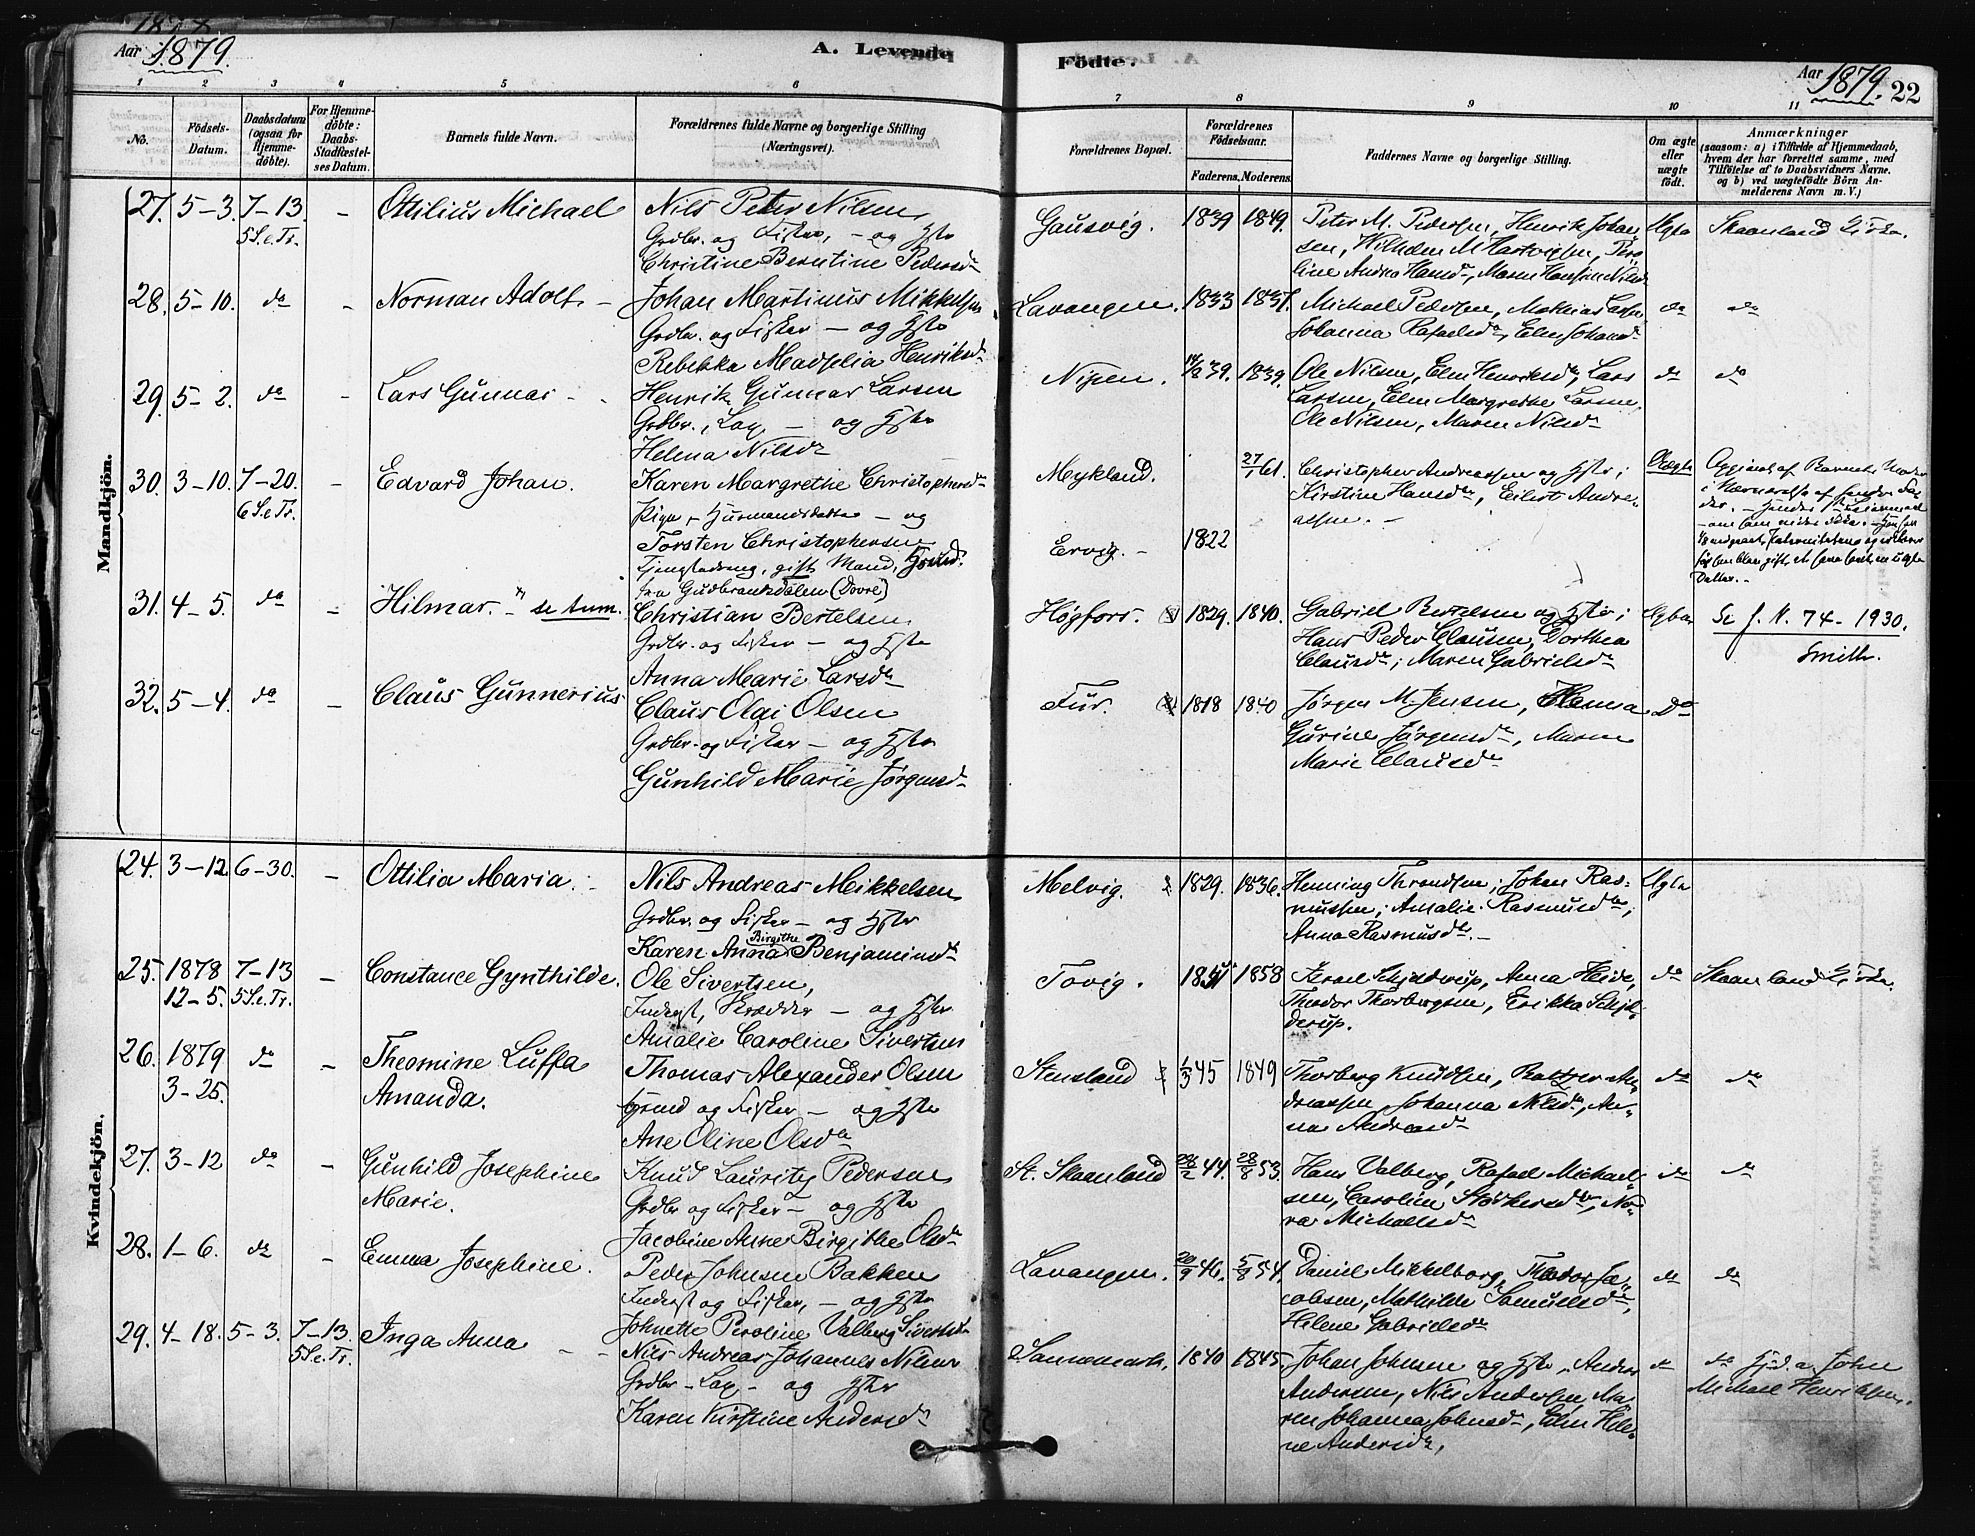 1878
Aar 1879.
A. Levende
Födte.
Aar 1879. 22
1 2 3 4 5 6 7 8 9 10 11
No.
Födsels-Datum.
Daabsdatum (ogsaa for Hjemme-döbte).
For Hjemme-döbte: Daabs-Stadfæstel-ses Datum.
Barnets fulde Navn.
Forældrenes fulde Navne og borgerlige Stilling (Næringsvei).
Forældrenes Bopæl.
Forældrenes Födselsaar.
Faderens. Moderens.
Faddernes Navne og borgerlige Stilling.
Om ægte eller uægte födt.
Anmærkninger
(saasom: a) i Tilfælde af Hjemmedaab,
hvem der har forrettet samme, med
Tilföielse af to Daabsvidners Navne.
og b) ved uægtefödte Börn An-
melderens Navn m. V.)
Mandkjön.
27. 5-3. 7-13. 5 S.e.Tr. - Ottilius Michael
Nils Peter Nilsen,
Grdbr. og Fisker, - og Hstr
Christine Berntine Pedersdr
Gausvig. 1839 1849.
Peter M. Pedersen, Henrik Johan
sen, Wilhelm M Hartvigsen, Pero
line Andrea Hansdr, Maren Hansine Nilsdr
Ægte Skaanland Kirke.
28. 5-10. do - Norman Adolf -
Johan Martinus Mikkelsen
Grdbr. og Fisker - og Hstr
Rebekka Henriksdr
Lavangen. 1833 1837.
Michael Pedersen, Mathias
Johanna Rafaelsdr, Elen Johansdr
do do
29. 5-2. do - Lars Gunnar -
Henrik Gunnar Larsen
Grdbr., Lap, - og Hstr
Helena Nilsdr
Nipen. 39. 1839.
Ole Nilsen, Elen Henriksdr, Lars
Larsen, Elen Margrethe Larsen,
Ole Nilsen, Maren Nilsdr
do do
30. 3-10. 7-20. 6 S.e.Tr. - Edvard Johan.
Karen Margrethe Christophersdr
Pige, Husmandsdatter - og
Torsten Christophersen
gift Mand,
fra Gudbrandsdalen (Dovre)
Meykland. 27/1 61.
Ervig. - 1822
Christopher Andreassen og Hstr;
Kirstine Hansdr, Eilert Andre-
assen. -
Uægte
Opgivet af Barnets Moder
i Nærværelse af hendes Fa-
der. -
31. 4-5. do - Hilmar. - se anm.
Christian Bertelsen
Grdbr. og Fisker - og Hstr
Anna Marie Larsdr
Høgfors. 1829. 1840.
Gabriel Bertelsen og Hstr;
Hans Peder Clausen, Dorthea
Clausdr; Maren Gabrielsdr
Ægte
Se J. N. 74 - 1930.
Smith.
32. 5-4. do - Claus Gunnerius
Claus Olai Olsen
Grdbr. og Fisker - og Hstr
Gunhild Marie Jørgensdr
Fur. 1818 1840
Jørgen M. Jensen, Hanna
Gurine Jørgensdr, Maren
Marie Clausdr
Do
Kvindekjön.
24. 3-12 6-30. - Ottilia Maria. -
Nils Andreas Mikkelsen
Grdbr. og Fisker - og Hstr
Karen Anna Birgithe Benjaminsdr
Melvig. 1829. 1836.
Henning Throndsen; Johan Ras-
mussen; Amalie Rasmusdr;
Anna Rasmusdr. -
Ægte
25. 1878 12-5. 7-13 5 S.e.Tr. - Constance Gynthilde.
Ole Sivertsen,
Inderst, Skrædder - og Hstr
Amalie Caroline Sivertsen
Tovig. 1858
Israel Schjelderup, Anna Heide,
Theodor Thorbergsen, Erikka Schjel-
derup.
do Skaanland Kirke.
26. 1879 3-25. do - Theomine Luffa
Amanda.
Thomas Alexander Olsen
og Fisker - og Hstr
Ane Oline Olsdr
Stensland 1/3 45 1849
Thorberg Knudsen, Baltzer An-
dreassen, Johanna Nilsdr, An-
na Andreasdr
do do
27. 3-12 do - Gunhild Josephine
Marie.
Knud Lauritz Pedersen
Grdbr og Fisker - og Hstr
Jacobine Anne Birgithe Olsdr
St. Skaanland 44. 28/8 53.
Hans Valberg, Rafael Michael-
sen, Caroline Størkersdr, No-
ra Michaelsdr
do do
28. 1-6. do - Emma Josephine.
Peder Johnsen Bakken
Inderst og Fisker, - og Hstr
Johnette Peroline Valberg Sivertsdr
Lavangen. 20/9 46. 5/8 54.
Daniel Mikkelborg, Theodor Ja-
cobsen, Mathilde Samuelsdr,
Helene Gabrielsdr
do do
29. 4-18. 5-3. 7-13. 5 S.e.Tr. Inga Anna - -
Nils Andreas Johannes Nilsen
Grdbr - Lap - og Hstr
Karen Kirstine Andersdr
Sannemark. 1840 1845.
Johan Johnsen og Hstr, Anders
Andersen, Nils Andersen, Ma-
ren Johanna Johnsdr, Elen Hele-
ne Andersdr,
do do Hjd. a. John
Michael Henriksen.